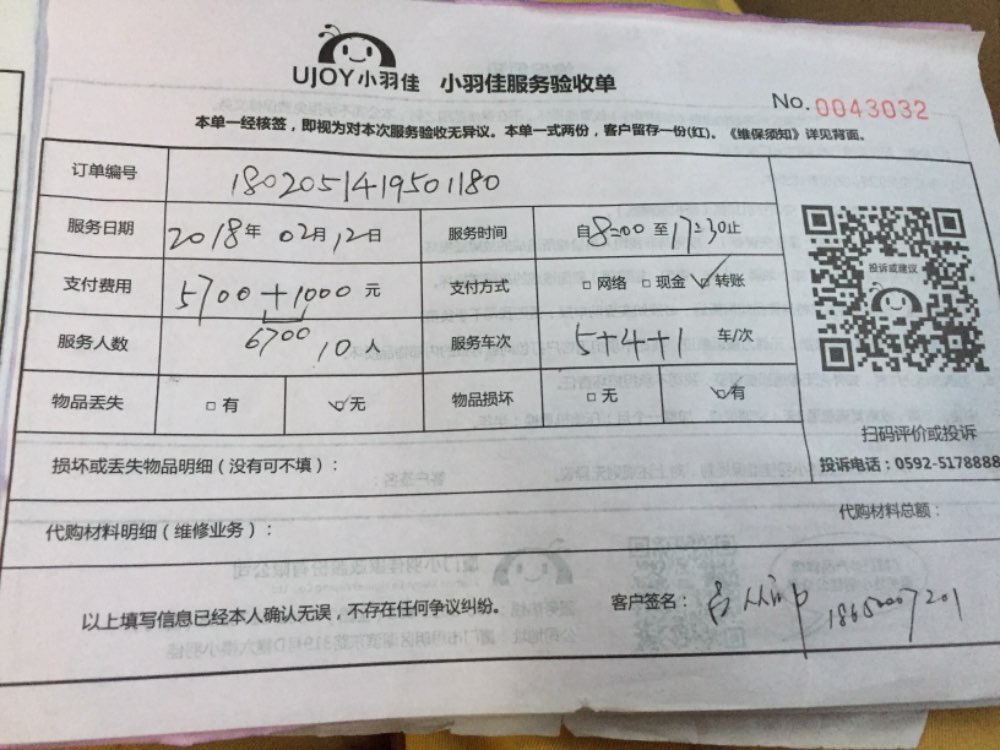 UJOY小羽佳 小羽佳服务验收单
No. 0043032
本单一经核签，即视为对本次服务验收无异议。本单一式两份，客户留存一份(红)。《维保须知》详见背面。
订单编号 1802051419501180
服务日期 2018年 02月12日 服务时间 自8:00 至17:30止
支付费用 5700+1000 元 支付方式 □ 网络 □ 现金 ☑ 转账
6700
服务人数 10人 服务车次 5+4+1 车/次
物品丢失 □ 有 ☑ 无 物品损坏 □ 无 ☑ 有
投诉或建议
扫码评价或投诉
投诉电话：0592-5178888
损坏或丢失物品明细（没有可不填）：
代购材料明细（维修业务）： 代购材料总额：
以上填写信息已经本人确认无误，不存在任何争议纠纷。 客户签名：